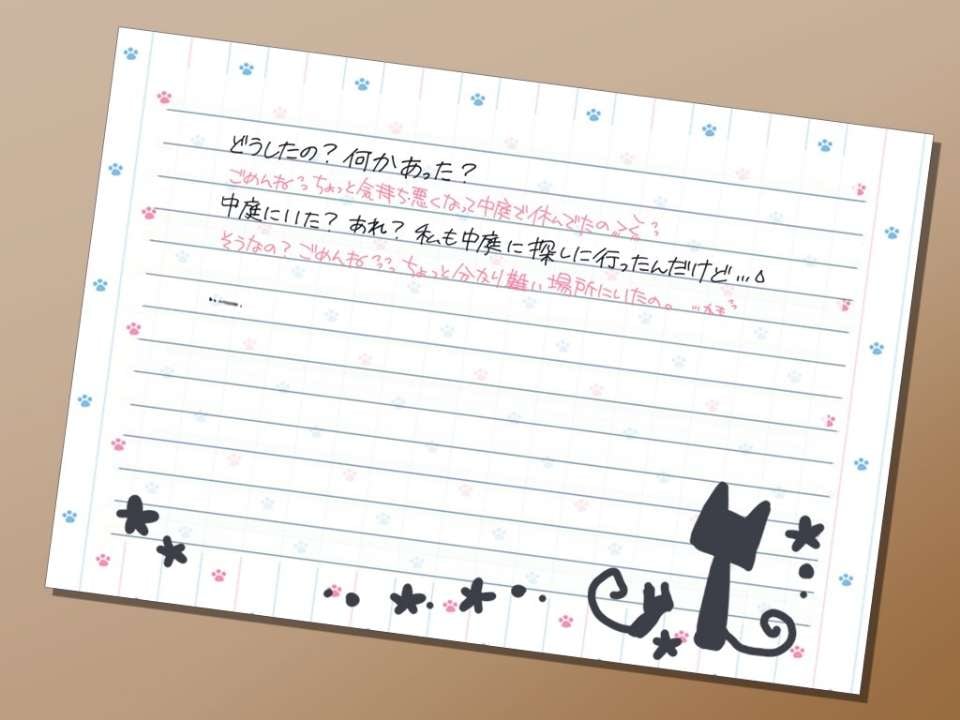 どうしたの？何かあった？
ごめんね、ちょっと気持ち悪くなって中庭で休んでたの
中庭にいた？あれ？私も中庭に探しに行ったんだけど…
そうなの？ごめんね ちょっと分かり難い場所にいたの。